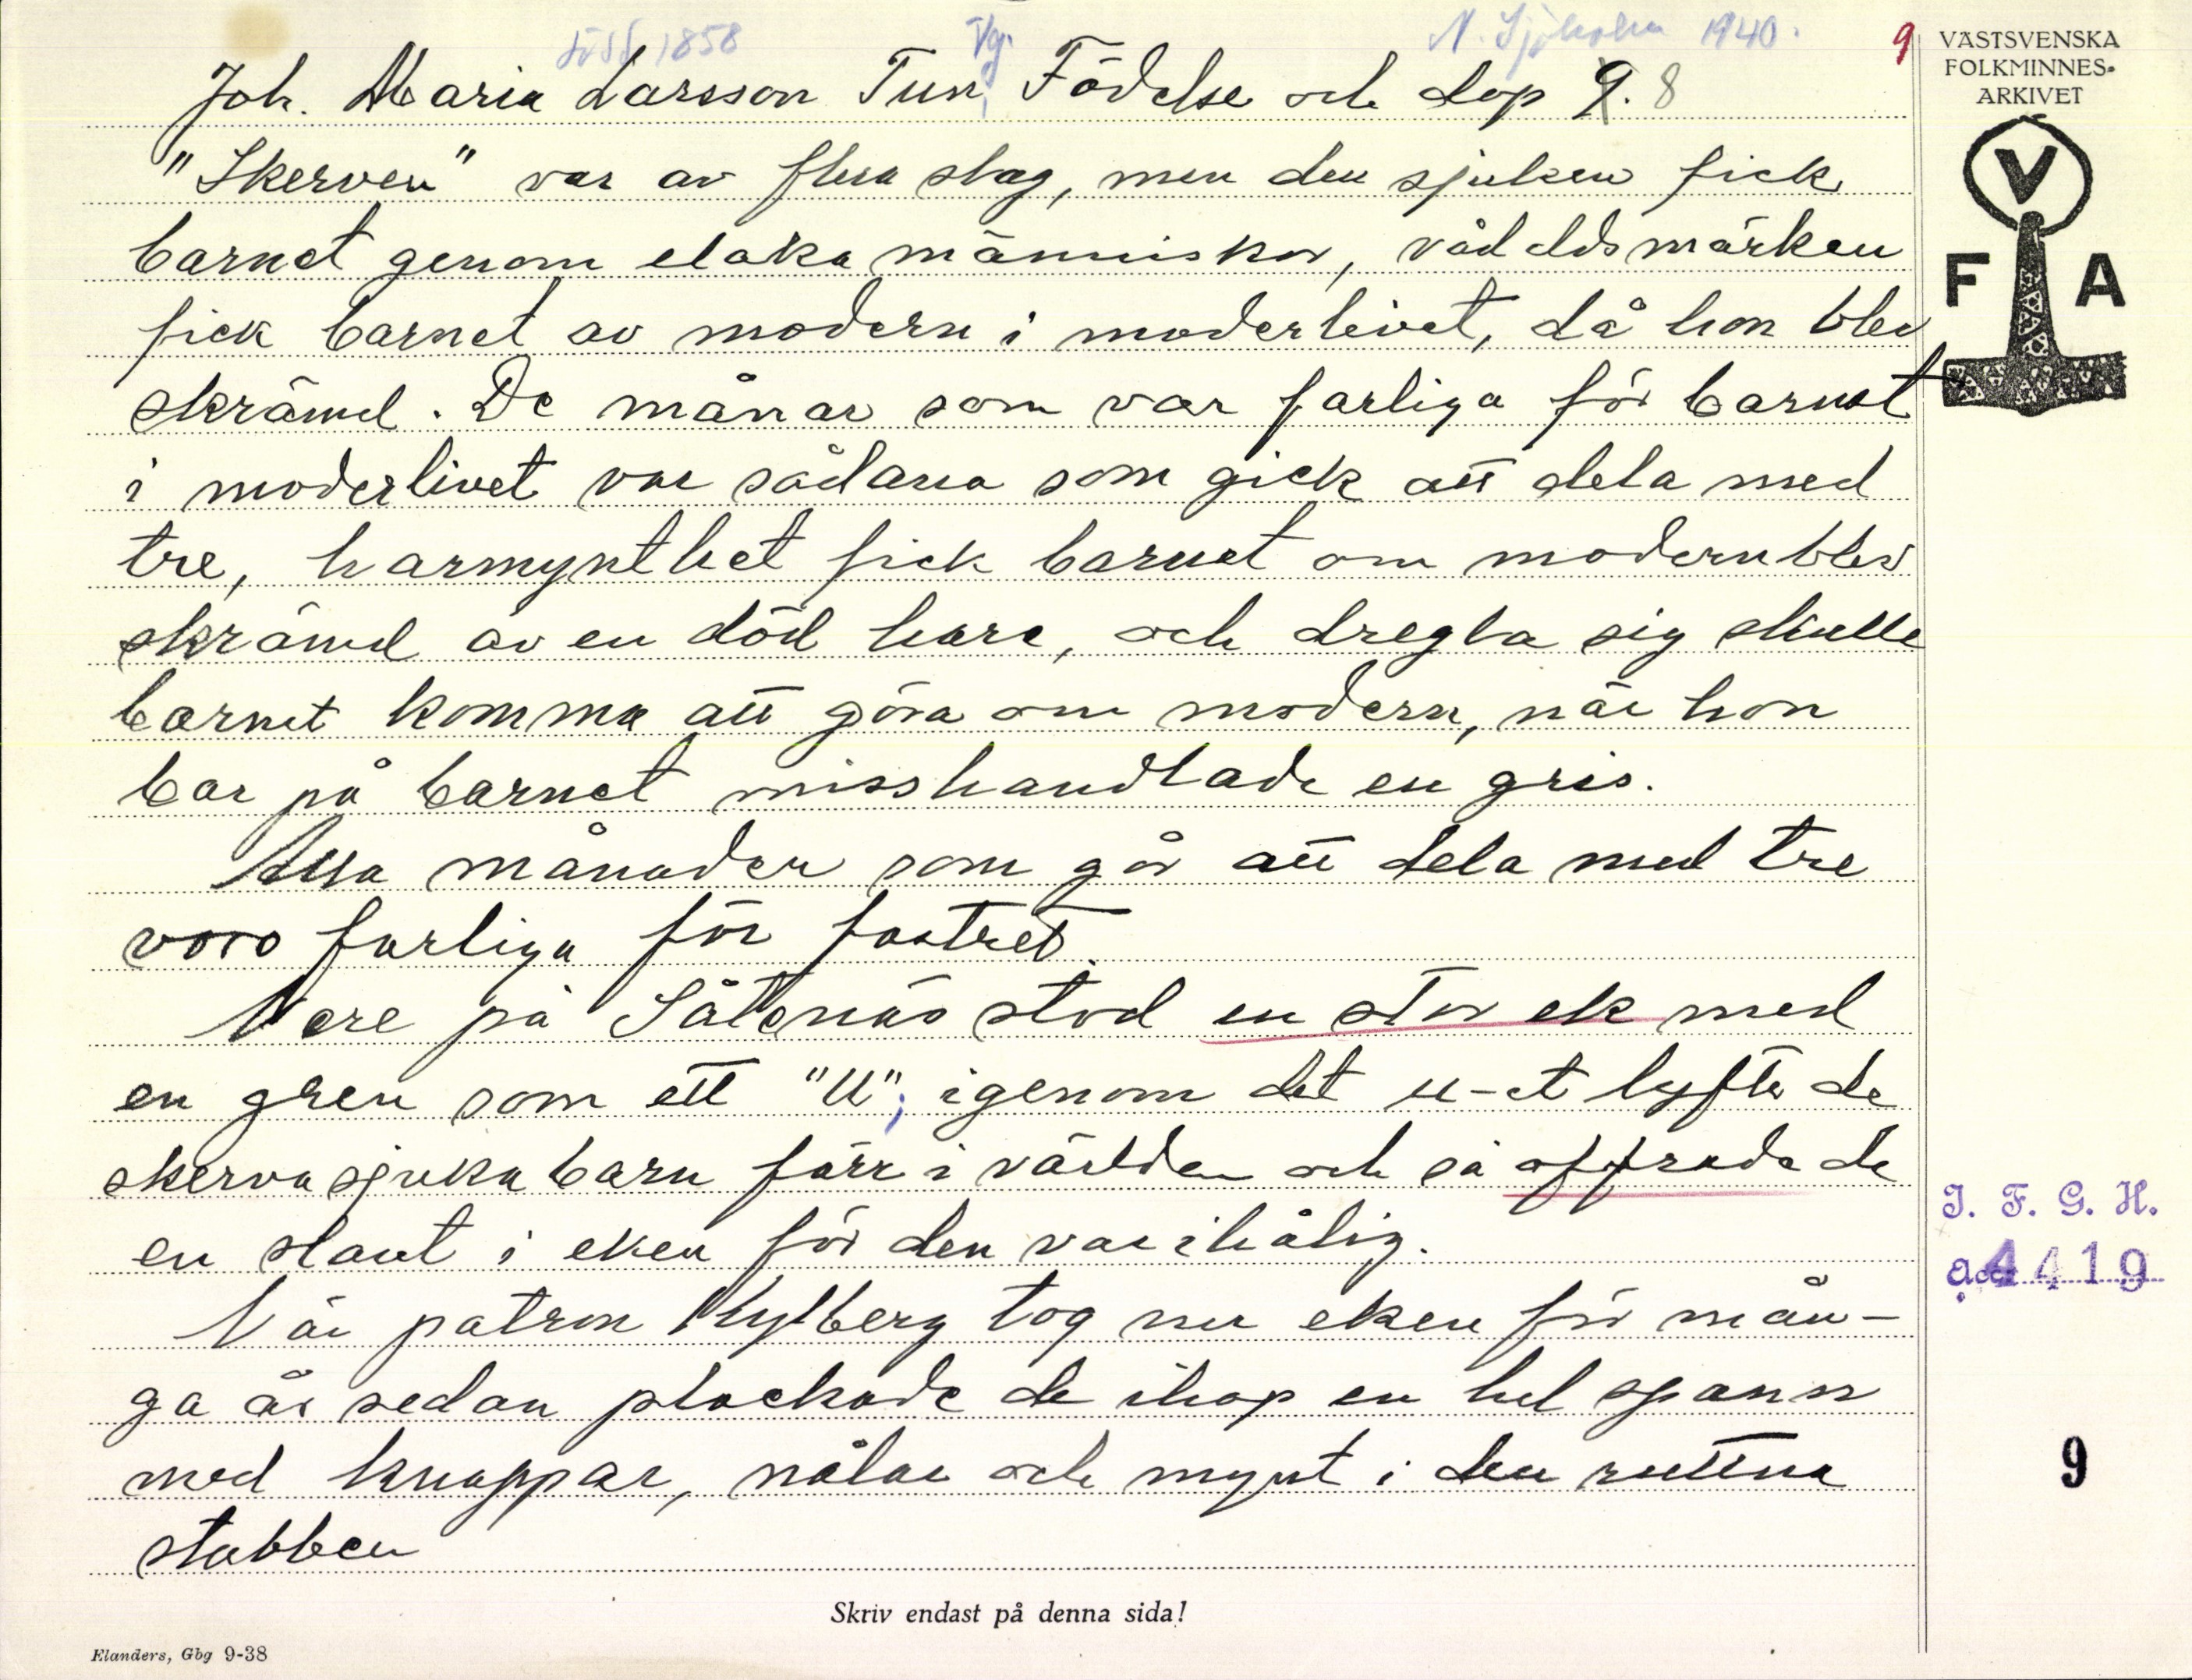 född 1858 Vg. N. Sjöholm 1940. 9
Joh. Maria Larsson Tun, Födelse och dop 9. 8
"Skerven" var av flera slag, men den sjukan fick
barnet genom elaka människor, vådeldsmärken
fick barnet av modern i moderlivet, då hon blev
skrämd. De månar som var farliga för barnet
i moderlivet var sådana som gick att dela med
tre, harmynthet fick barnet om modern blev
skrämd av en död hare, och dregla sig skulle
barnet komma att göra om modern, när hon
bar på barnet misshandlade en gris.
Alla månader som går att dela med tre
voro farliga för fostret.
Nere på Såtenäs stod en stor ek med
en gren som ett "U"; igenom det u-et lyfte de
skerva sjuka barn förr i världen och så offrade de
en slant i eken för den var ihålig.
När patron Kylberg tog ner eken för mån-
ga år sedan plockade de ihop en hel spann
med knappar, nålar och mynt i den ruttna
stubben
Skriv endast på denna sida!
Elanders, Gbg 9-38
VÄSTSVENSKA
FOLKMINNES-
ARKIVET
V
F A
I. F. G. H.
acc 4419
9